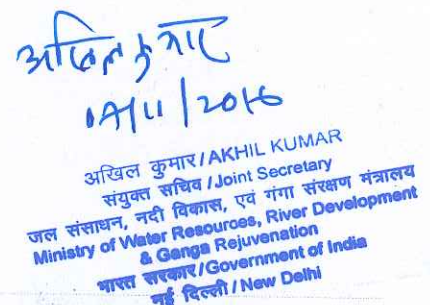 अखिल कुमार
11/2016
अखिल कुमार/AKHIL KUMAR
संयुक्त सचिव/Joint Secretary
जल संसाधन, नदी विकास, एवं गंगा संरक्षण मंत्रालय
Ministry of Water Resources, River Development
& Ganga Rejuvenation
भारत सरकार/Government of India
नई दिल्ली/New Delhi